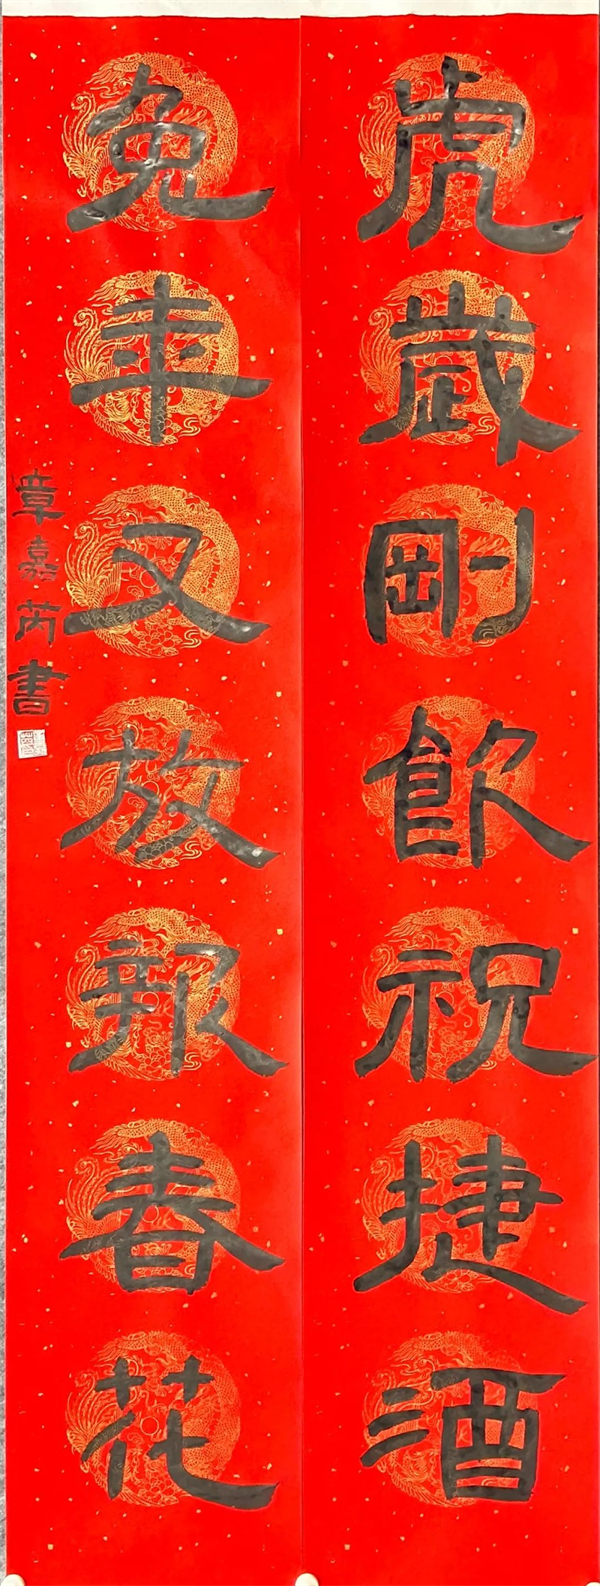 虎歲剛飲祝捷酒
兔年又放報春花
章嘉芮書